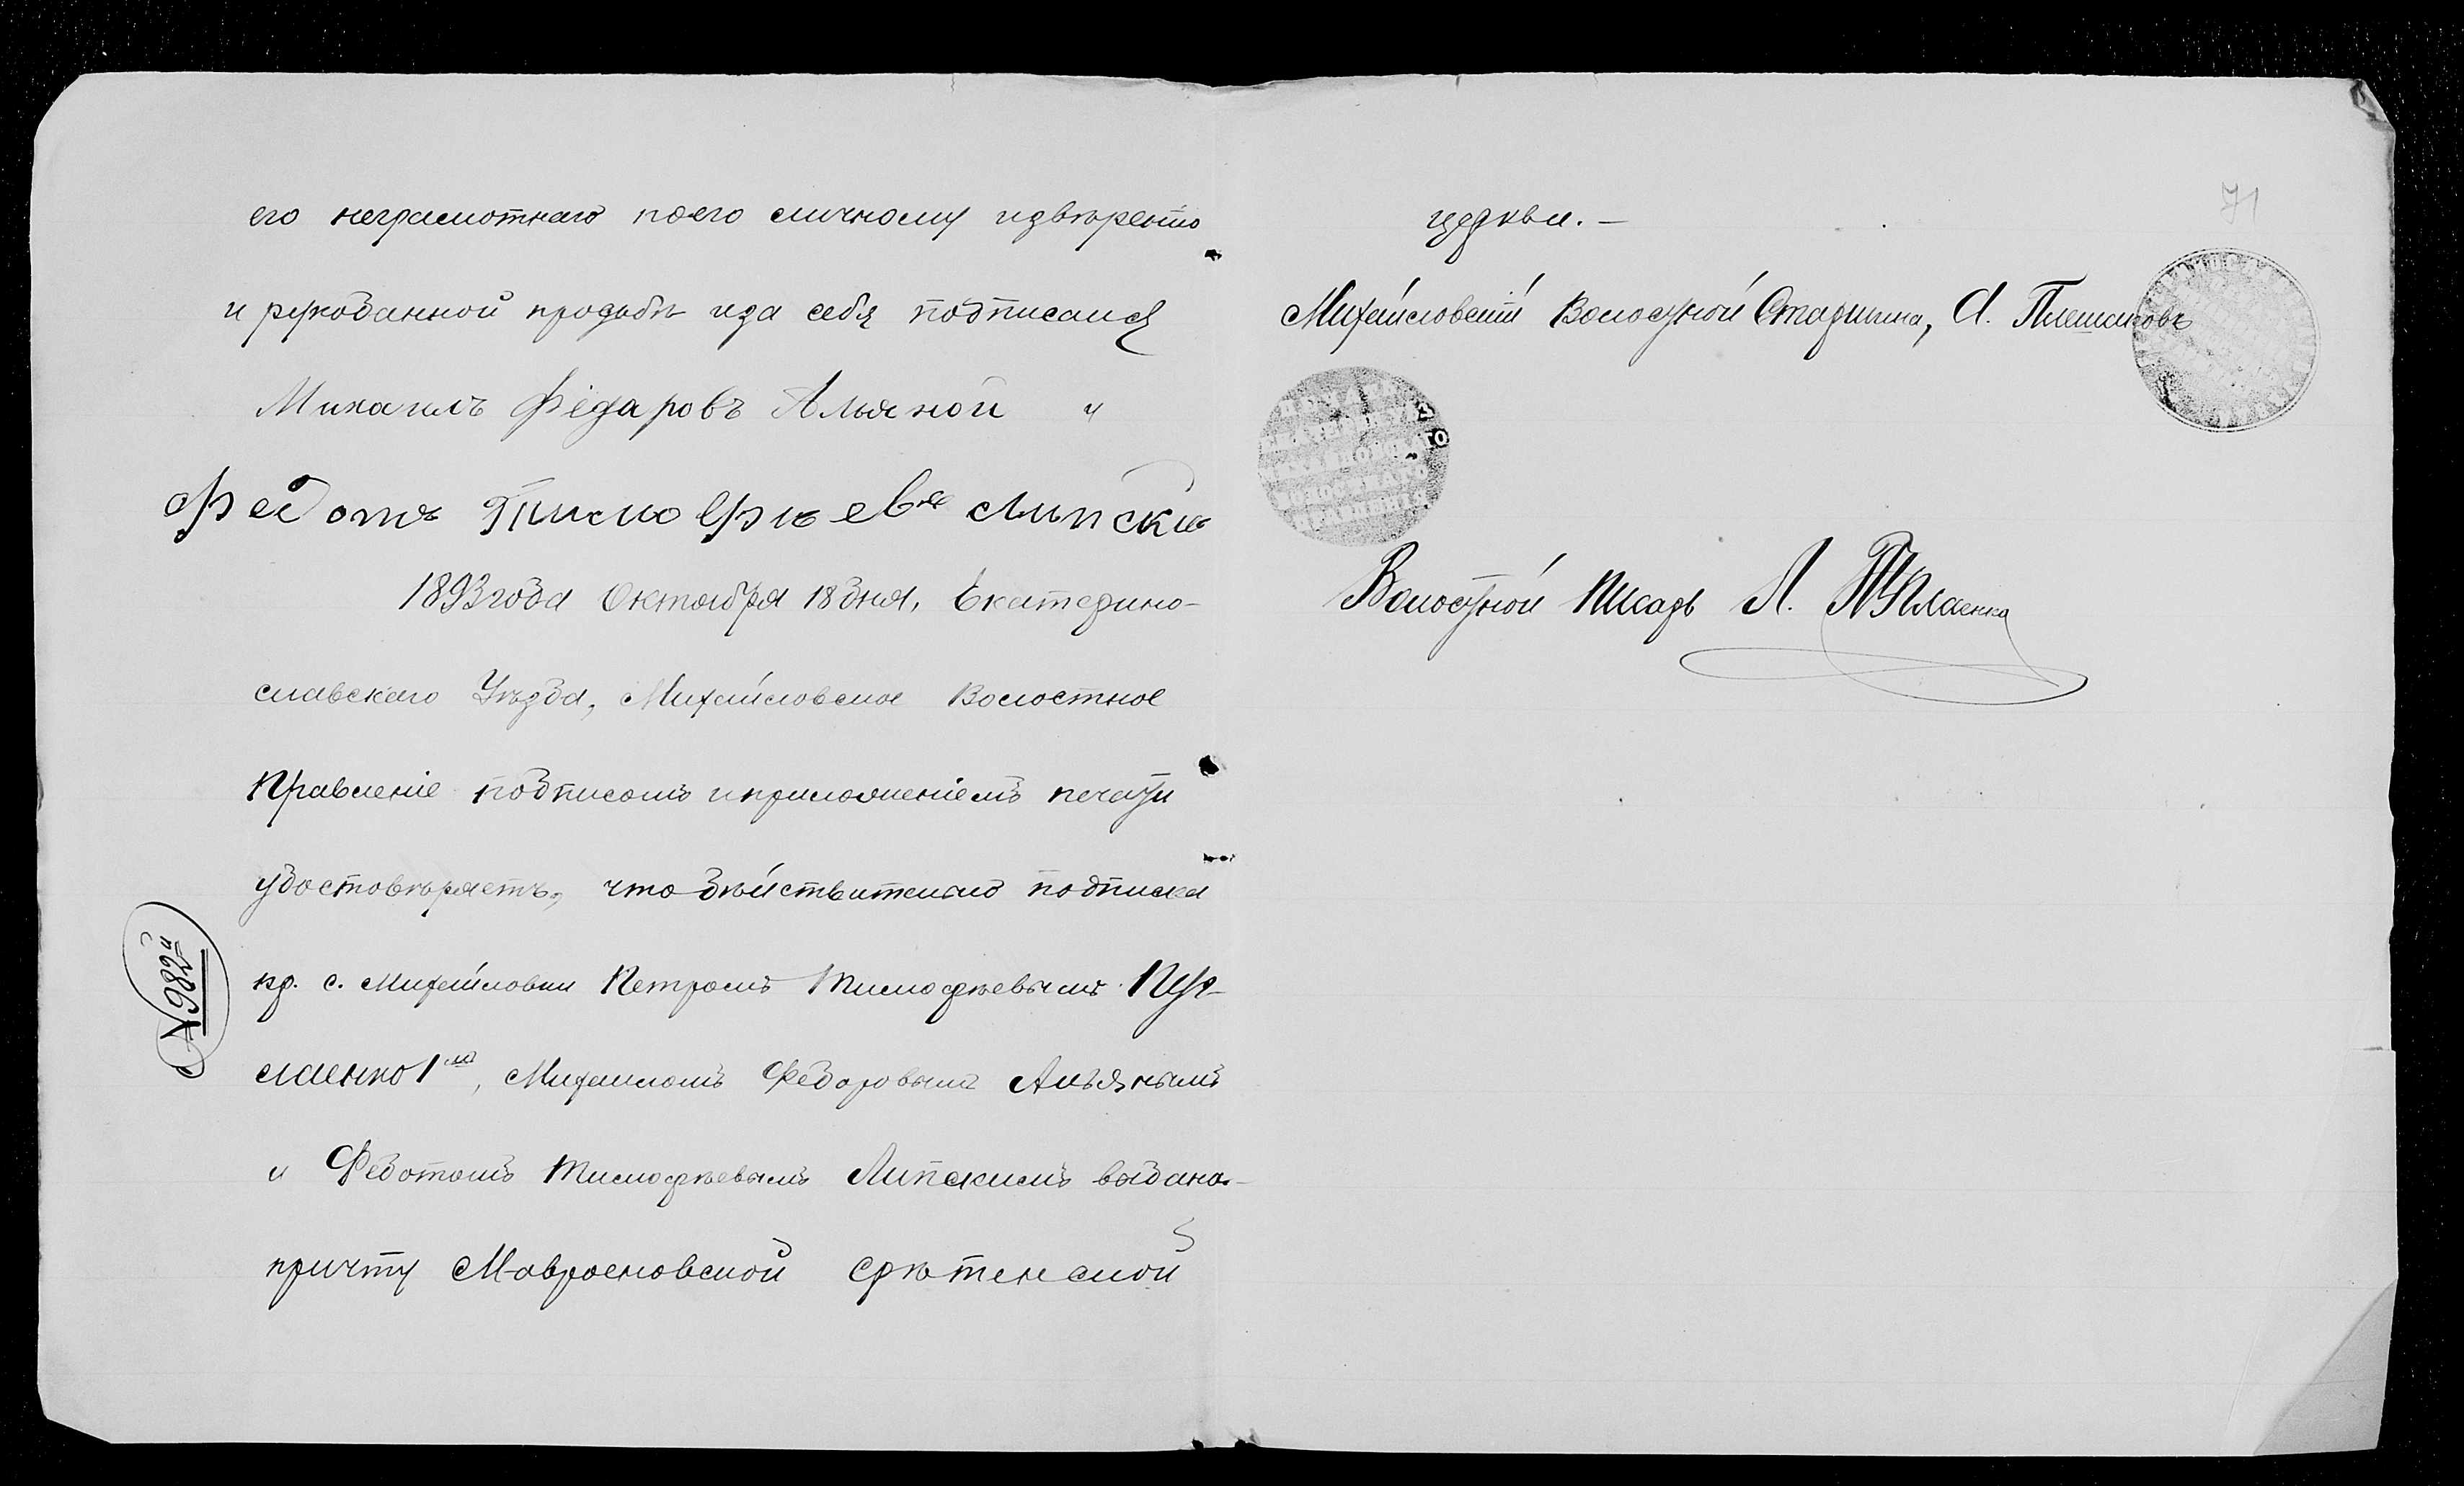 его неграмотнаго по его личному и довѣренію
и рукоданной прозьбѣ и за себя подписался
Михаилъ Фёдаровъ Альяной и
Федотъ Тимоѳѣевъ Липски
1893 года Октября 18 дня, Екатерино-
славскаго Уѣзда, Михайловское Волостное
Правленіе подписомъ и приложеніемъ печати
удостовѣряетъ, что дѣйствительно подписка
кр. с. Михайловки Петромъ Тимофѣевымъ
1мъ, Михаиломъ Федоровымъ Альянымъ
и Федотомъ Тимофѣевымъ Липскимъ выдана
причту Маврослової Срѣтенской
№ 982й
71
церкви. —
Михайловскій Волостной Старшина, А. Плешаковъ
ВОЛОСТНАГО
ПРАВЛЕНІЯ
Волостной Писарь Л.